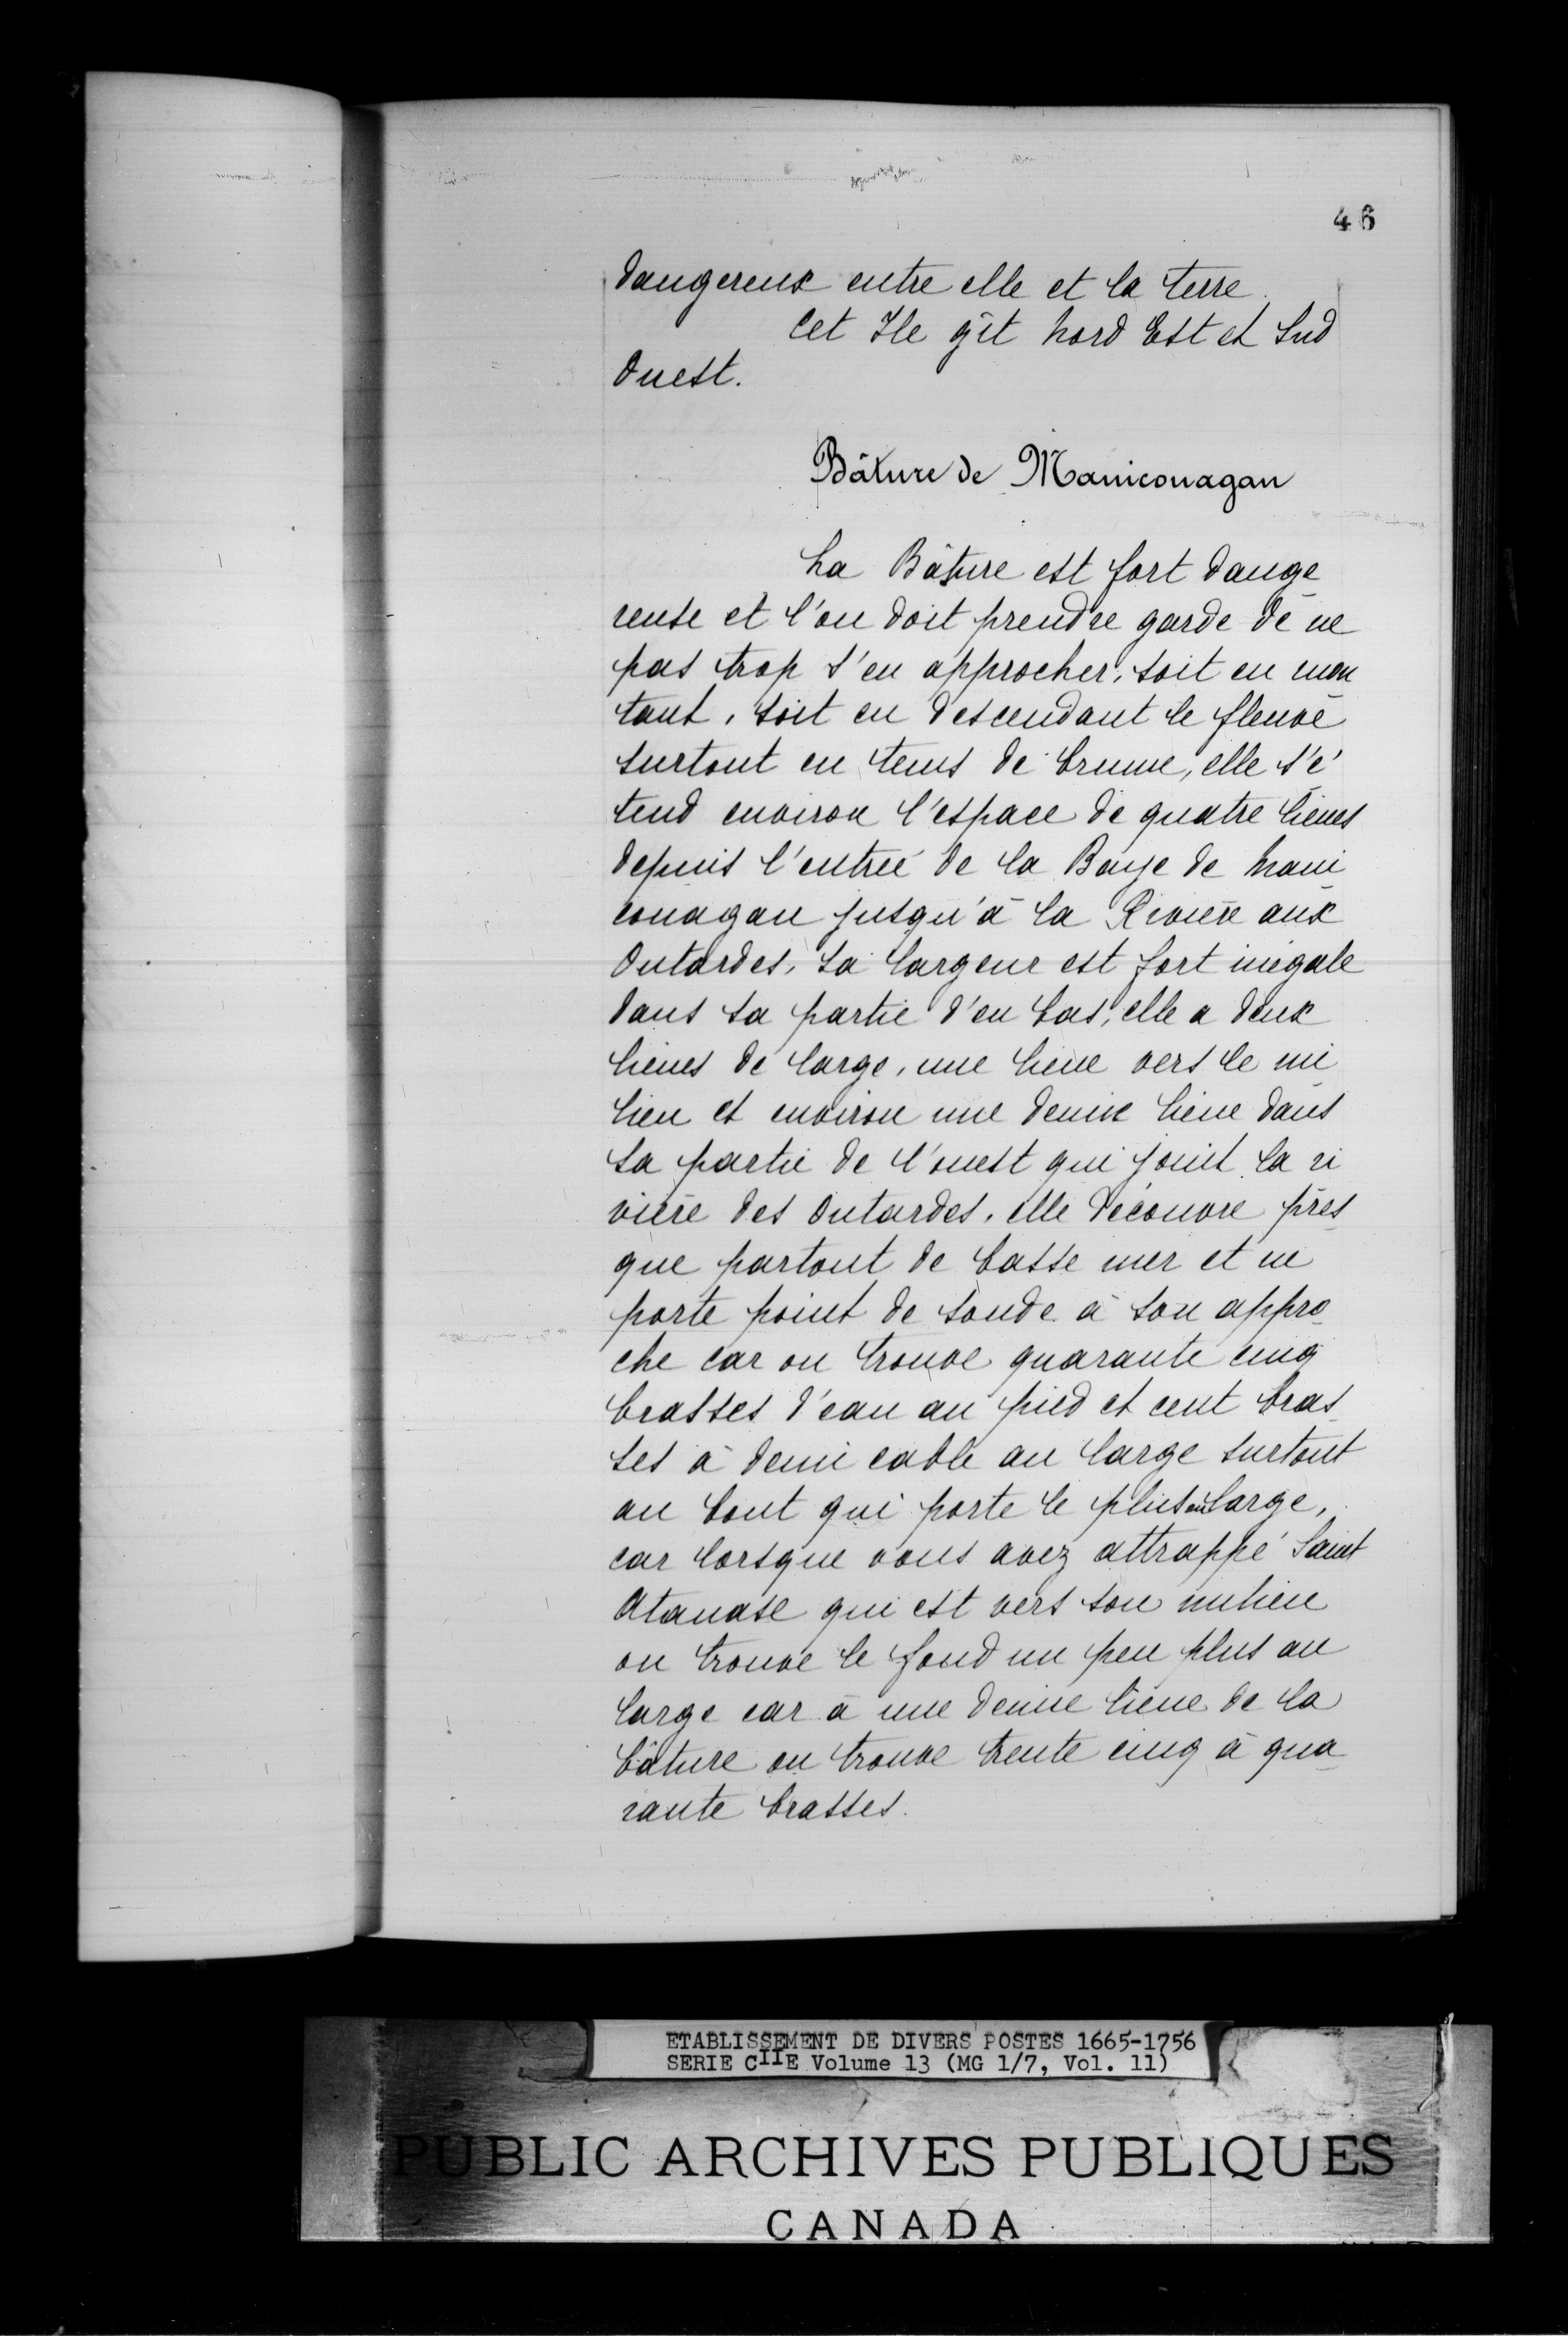 46
dangereux entre elle et la terre.
Cet Ile gît Nord Est et Sud
Ouest.
Bâture de Manicouagan
La Bâture est fort dange
reuse et l'on doit prendre garde de ne
pas trop s'en approcher, soit en mon
tant, soit en descendant le fleuve
surtout en tems de brume, elle s'é
tend environ l'espace de quatre lieues
depuis l'entrée de la Baye de Mani
couagan jusqu'à la Rivière aux
Outardes, sa largeur est fort inégale
dans sa partie d'en bas, elle a deux
lieues de large, une lieue vers le mi
lieu et environ une demie lieue dans
sa partie de l'ouest qui joint la ri
vière des Outardes, elle découvre pres
que partout de basse mer et ne
porte point de sonde à son appro
che car on trouve quarante cinq
brasses d'eau au pied et cent bras
ses à demi cable au large surtout
au bout qui porte le plus au large,
car lorsque vous avez attrappé Saint
Atanase qui est vers son milieu
on trouve le fond un peu plus au
large car à une demie lieue de la
bâture on trouve trente cinq à qua
rante brasses.
ETABLISSEMENT DE DIVERS POSTES 1665-1756
SERIE CIIE Volume 13 (MG 1/7, Vol. 11)
PUBLIC ARCHIVES PUBLIQUES
CANADA